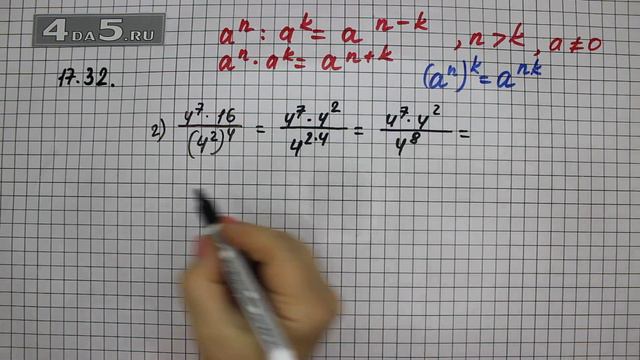 4DA5.RU
aⁿ : aᵏ = a ⁿ⁻ᵏ , n > k , a ≠ 0
aⁿ · aᵏ = aⁿ⁺ᵏ
(aⁿ)ᵏ = aⁿᵏ
17.32.
2) (4⁷ · 16)/(4²)⁴ = (4⁷ · 4²)/4²·⁴ = (4⁷ · 4²)/4⁸ =